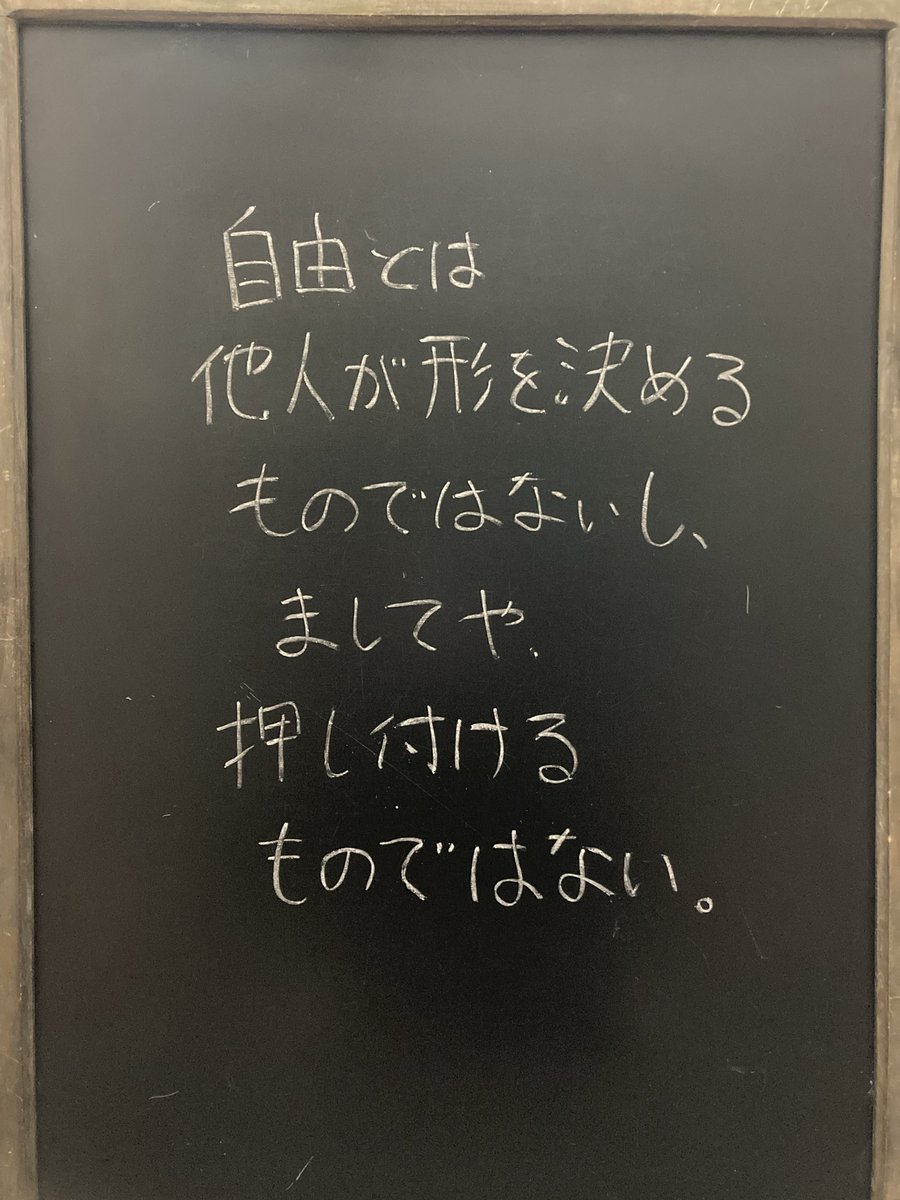 自由とは
他人が形を決める
ものではないし、
ましてや、
押し付ける
ものではない。